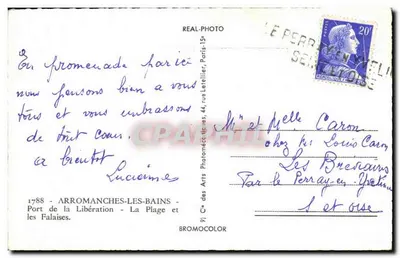 REAL-PHOTO
LE PERRAY EN YVELI
SEINE ET OISE
20F
En promenade par ici
nous pensons bien a vous
tous et vous embrassons
de tout coeur.
a bientot
Lucienne
Mr et Melle Caron
chez Mr Louis Caron
Les Bréviaires
Par le Perray-en-Yveline
S et oise
Cie des Arts Photomécaniques, 44, rue Letellier, Paris-15e
1788 - ARROMANCHES-LES-BAINS -
Port de la Libération - La Plage et
les Falaises.
BROMOCOLOR